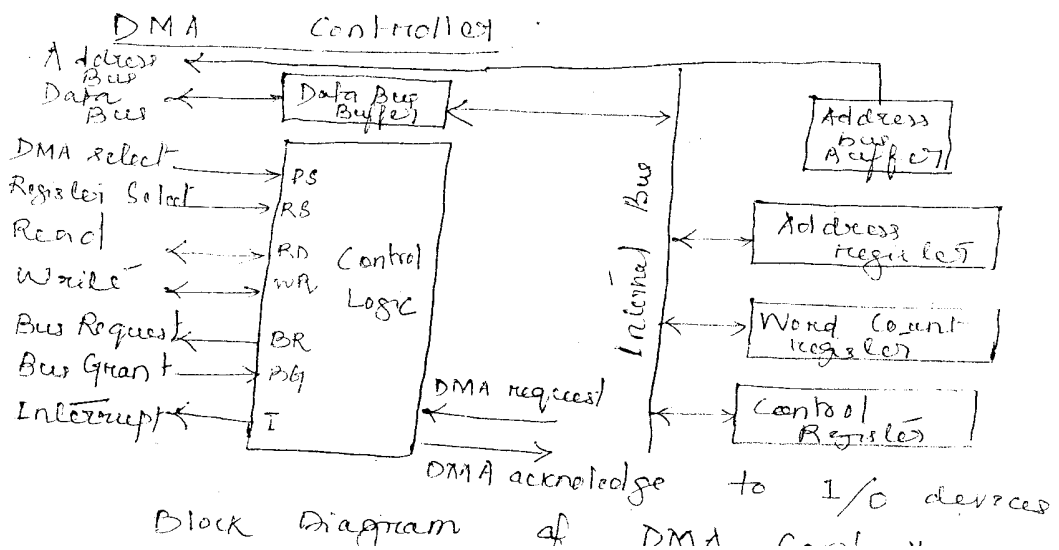 DMA Controller
Address
Bus
Data
Bus
Data Bus
Buffer
Address
Bus
Buffer
DMA select
DS
Register Select
RS
Read
RD
Write
WR
Control
Logic
Bus Request
BR
Bus Grant
BG
Interrupt
I
Internal Bus
Address
register
Word Count
register
Control
Register
DMA request
DMA acknoledge to I/O devices
Block Diagram of DMA